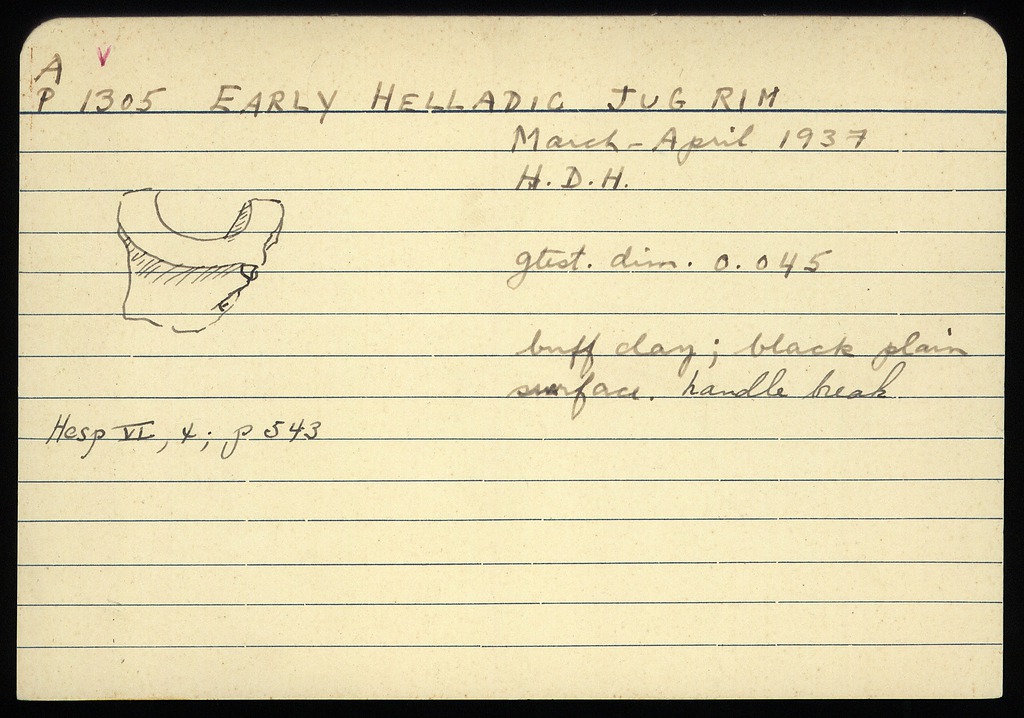 A v
P 1305 EARLY HELLADIC JUG RIM
March - April 1937
H. D. H.
gtest. dim. 0.045
buff clay; black plain
surface. handle break
Hesp VI, 4; p 543